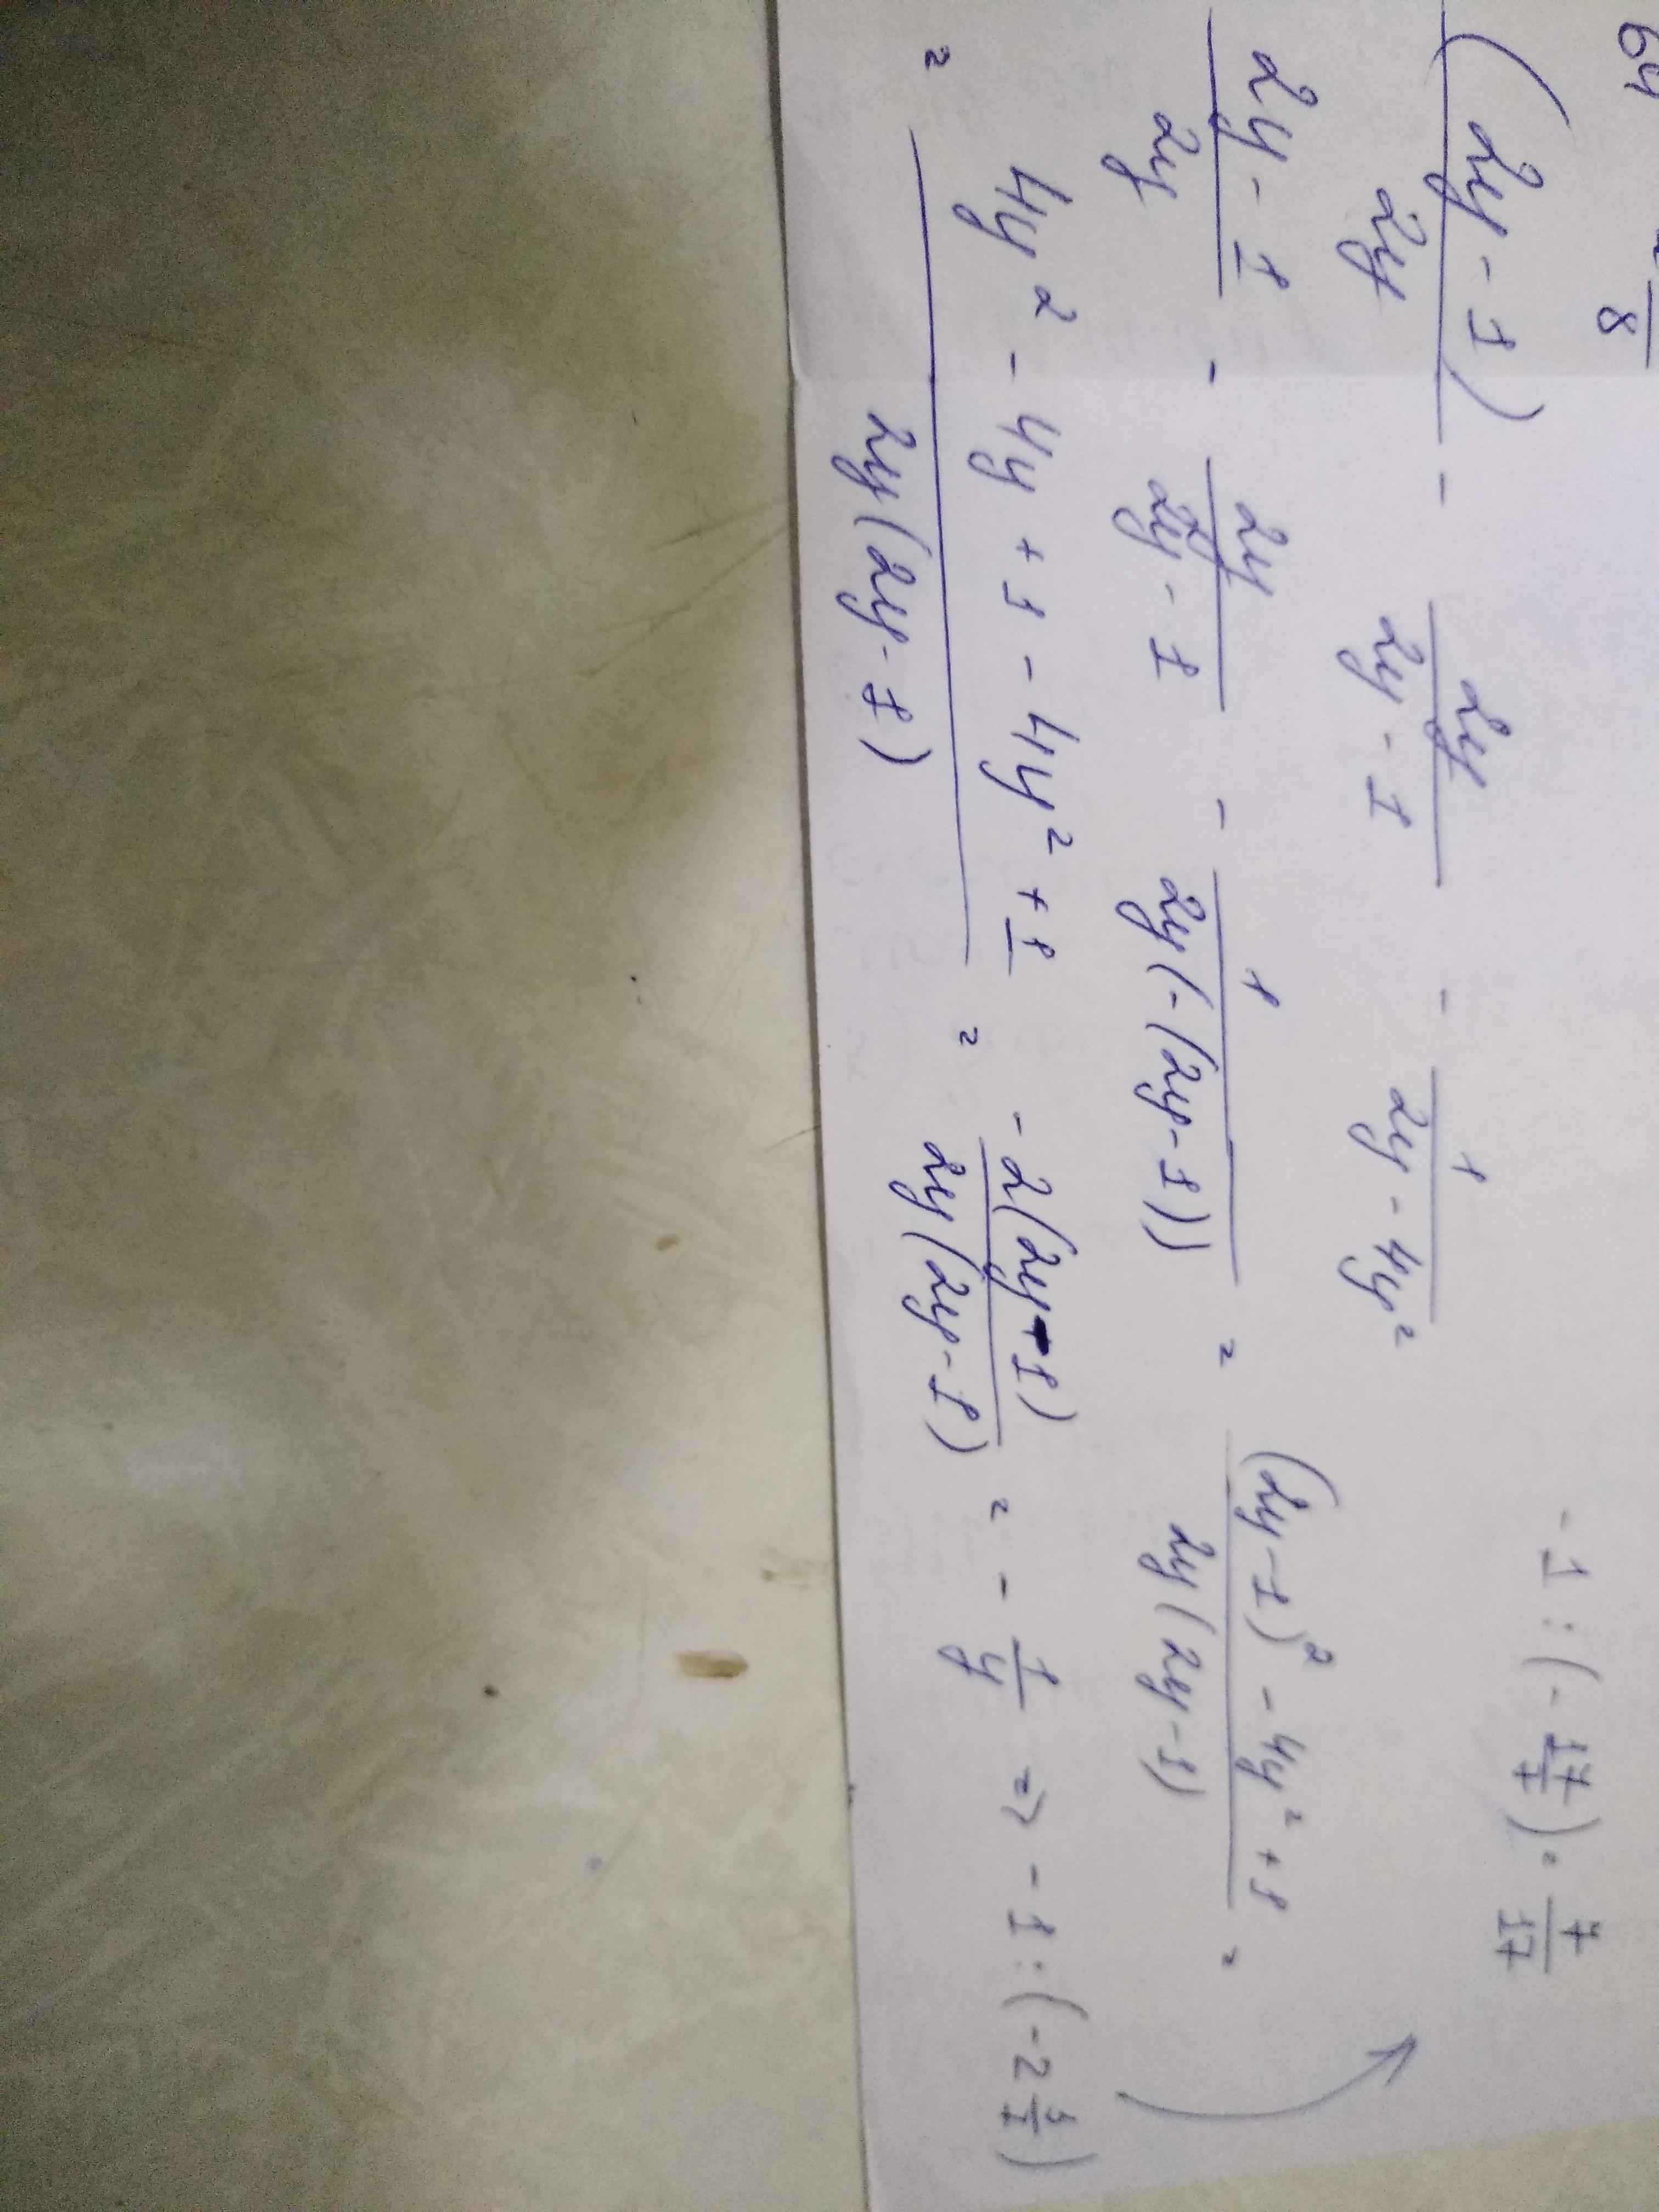 64 8
(2y - 1) / 2y - 2y / (2y - 1) - 1 / (2y - 4y²) -1 : (- 17/7) = 7/17
(2y - 1) / 2y - 2y / (2y - 1) - 1 / (2y(-(2y - 1))) = ((2y - 1)² - 4y² + 1) / (2y(2y - 1)) =
= (4y² - 4y + 1 - 4y² + 1) / (2y(2y - 1)) = -2(2y - 1) / (2y(2y - 1)) = - 1/y => -1 : (-2 3/7)